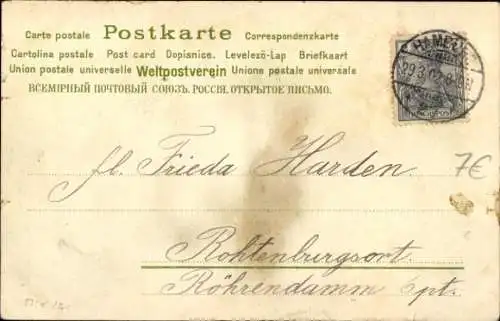 Carte postale Postkarte Correspondenzkarte
Cartolina postale Post card Dopisnice. Levelező-Lap Briefkaart
Union postale universelle Weltpostverein Unione postale universale
ВСЕМІРНЫЙ ПОЧТОВЫЙ СОЮЗЪ. РОССІЯ. ОТКРЫТОЕ ПИСЬМО.
HAMBURG
29.3.02
fl. Frieda Harden.
7€
Rothenburgsort.
Röhrendamm pt.